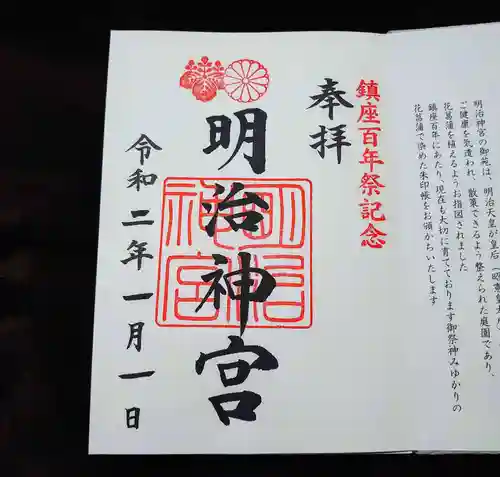 明治神宮の御苑は、明治天皇が皇后
ご健康を気遣われ、散策できるよう整えられた庭園であり、
花菖蒲を植えるようお指図されました
鎮座百年にあたり、現在も大切に育てております御祭神みゆかりの
花菖蒲で染めた朱印帳をお頒かちいたします
鎮座百年祭記念
奉拝
明治神宮
明治
神宮
令和二年一月一日